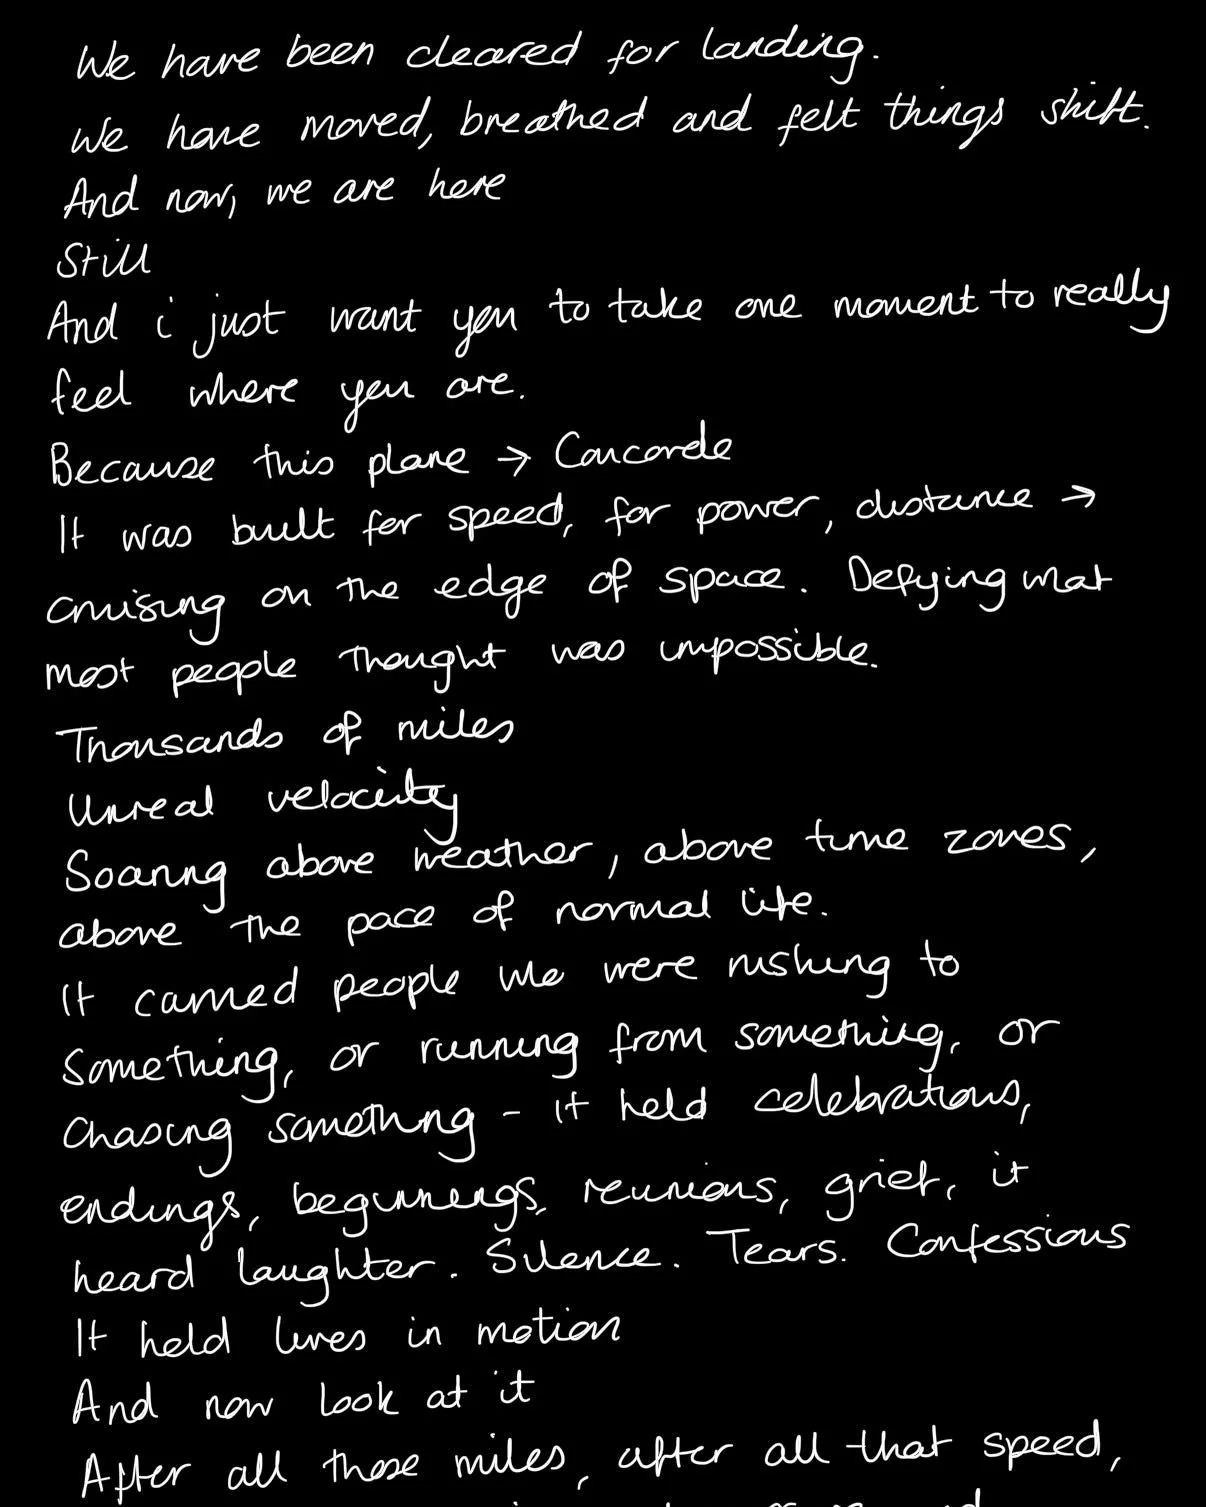 We have been cleared for landing.
We have moved, breathed and felt things shift.
And now, we are here
Still
And i just want you to take one moment to really
feel where you are.
Because this plane → Concorde
It was built for speed, for power, distance →
cruising on the edge of space. Defying what
most people thought was impossible.
Thousands of miles
Unreal velocity
Soaring above weather, above time zones,
above the pace of normal life.
It carried people who were rushing to
Something, or running from something, or
Chasing something - it held celebrations,
endings, beginnings, reunions, grief, it
heard laughter. Silence. Tears. Confessions
It held lives in motion
And now look at it
After all those miles, after all that speed,